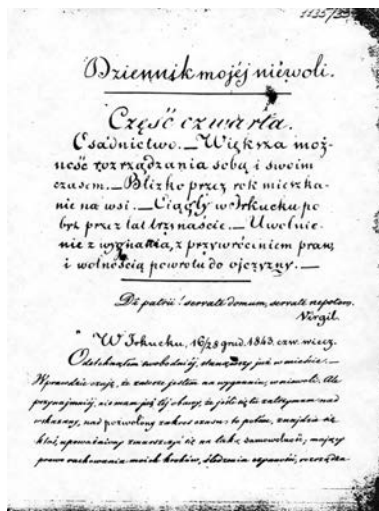 1135/33
Dziennik mojéj niewoli.
Część czwarta.
Osadnictwo. — Większa moż-
ność rozrządzania sobą i swoim
czasem. — Blizko przez rok mieszka-
nie na wsi. — Ciągły w Irkucku po
byt przez lat trzynaście. — Uwolnie-
nie z wygnania, z przywróceniem praw,
i wolnością powrotu do ojczyzny. —
Di patrii! servate domum, servate nepotem.
Virgil.
W Irkucku, 16/28 grud. 1843. czw. wiecz.
Odetchnąłem swobodniéj, stanąwszy już w mieście. —
Wprawdzie czuję, że zawsze jestem na wygnaniu, w niewoli. Ale
przynajmniéj, nie mam już téj obawy, że jeśli się zatrzymam nad
wskazany, nad pozwolony zakres czasu: to potém, znajdzie się
ktoś, upoważniony
prawo rachowania moich kroków, śledzenia